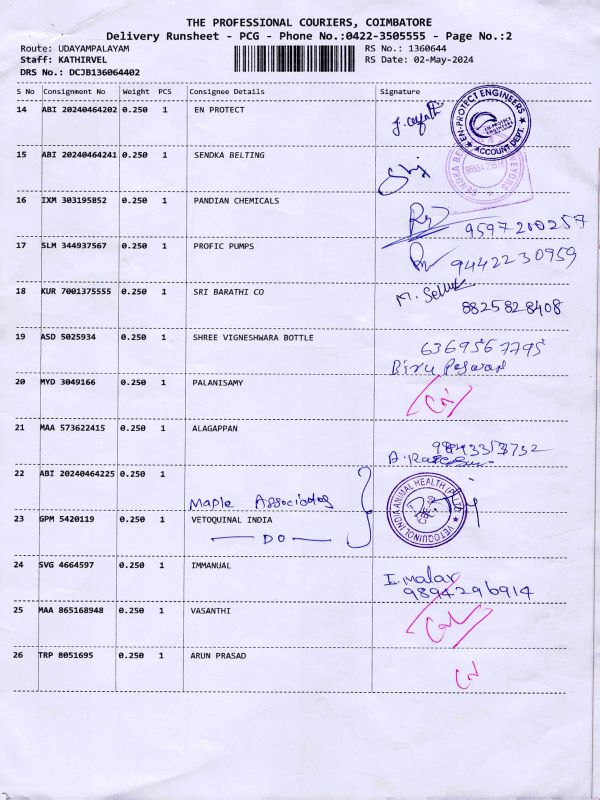 THE PROFESSIONAL COURIERS, COIMBATORE
Delivery Runsheet - PCG - Phone No.:0422-3505555 - Page No.:2
Route: UDAYAMPALAYAM RS No.: 1360644
Staff: KATHIRVEL RS Date: 02-May-2024
DRS No.: DCJB136064402
S No Consignment No Weight PCS Consignee Details Signature
14 ABI 20240464202 0.250 1 EN PROTECT
EN-PROTECT ENGINEERS
★ ACCOUNT DEPT. ★
15 ABI 20240464241 0.250 1 SENDKA BELTING
16 IXM 303195852 0.250 1 PANDIAN CHEMICALS
9597200257
17 SLM 344937567 0.250 1 PROFIC PUMPS
9442230959
18 KUR 7001375555 0.250 1 SRI BARATHI CO
8825828408
19 ASD 5025934 0.250 1 SHREE VIGNESHWARA BOTTLE
6369567795
20 MYD 3049166 0.250 1 PALANISAMY
21 MAA 573622415 0.250 1 ALAGAPPAN
22 ABI 20240464225 0.250 1
Maple Associates
23 GPM 5420119 0.250 1 VETOQUINAL INDIA
— DO —
VETOQUINOL INDIA ANIMAL HEALTH (P) LTD
24 SVG 4664597 0.250 1 IMMANUAL
I. Malar
9894296914
25 MAA 865168948 0.250 1 VASANTHI
26 TRP 8051695 0.250 1 ARUN PRASAD